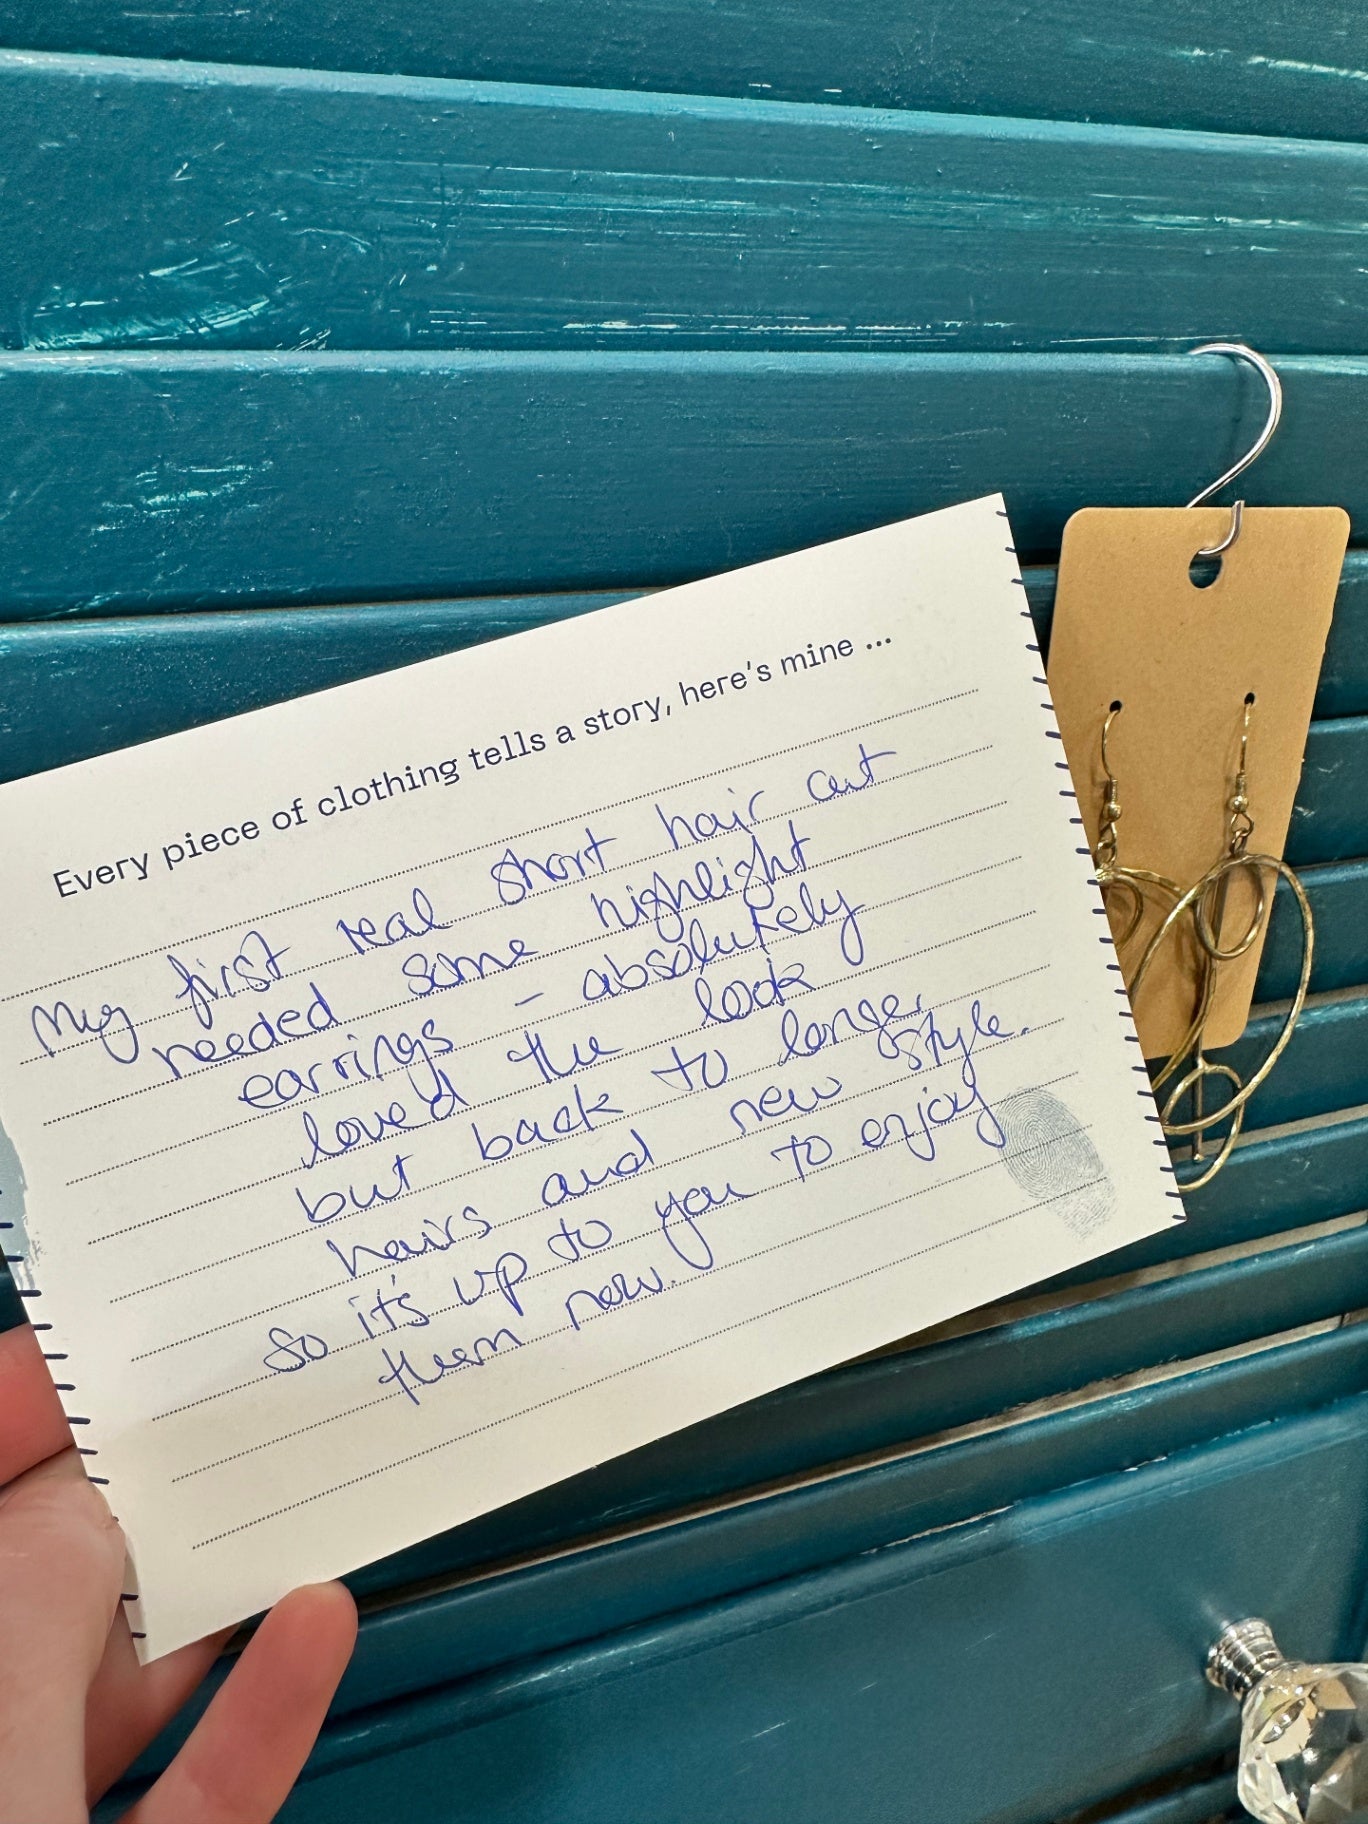 Every piece of clothing tells a story, here's mine ...
My first real short hair cut
needed some highlight
earrings - absolutely
loved the look
but back to longer
hairs and new style.
so it's up to you to enjoy
them now.